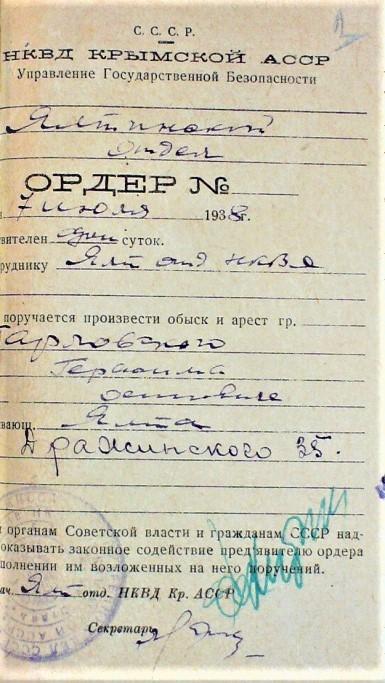 С. С. С. Р.
НКВД КРЫМСКОЙ АССР
Управление Государственной Безопасности
Ялтинский
отдел
ОРДЕР №
7 июля 1938г.
ствителен один суток.
труднику Ялт отд НКВД
поручается произвести обыск и арест гр.
Тарловского
Герасима
Осиповича
вающ. Ялта
Дражинского 35.
органам Советской власти и гражданам СССР над-
оказывать законное содействие пред'явителю ордера
полнении им возложенных на него поручений.
ач. Ялт отд. НКВД Кр. АССР
Секретарь